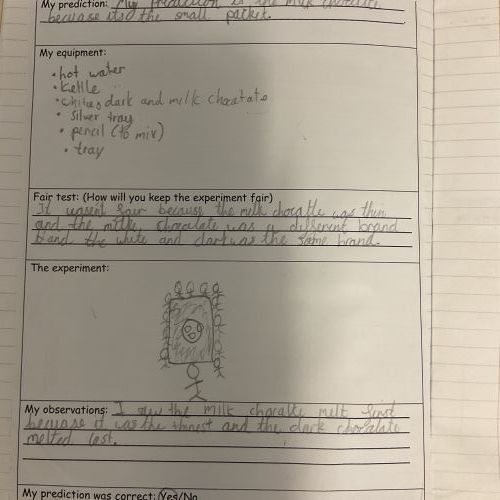 My prediction: My prediction is the milk chocolate
because its the small packet.
My equipment:
• hot water
• kettle
• white, dark and milk chocatate
• silver tray
• pencil (to mix)
• tray
Fair test: (How will you keep the experiment fair)
It wasent fair because the milk chocatte was thin
and the milk chocalate was a different brand
and the white and dark was the same brand.
The experiment:
My observations: I saw the milk chocalte melt first
because it was the thinest and the dark chocalate
melted last.
My prediction was correct: Yes/No